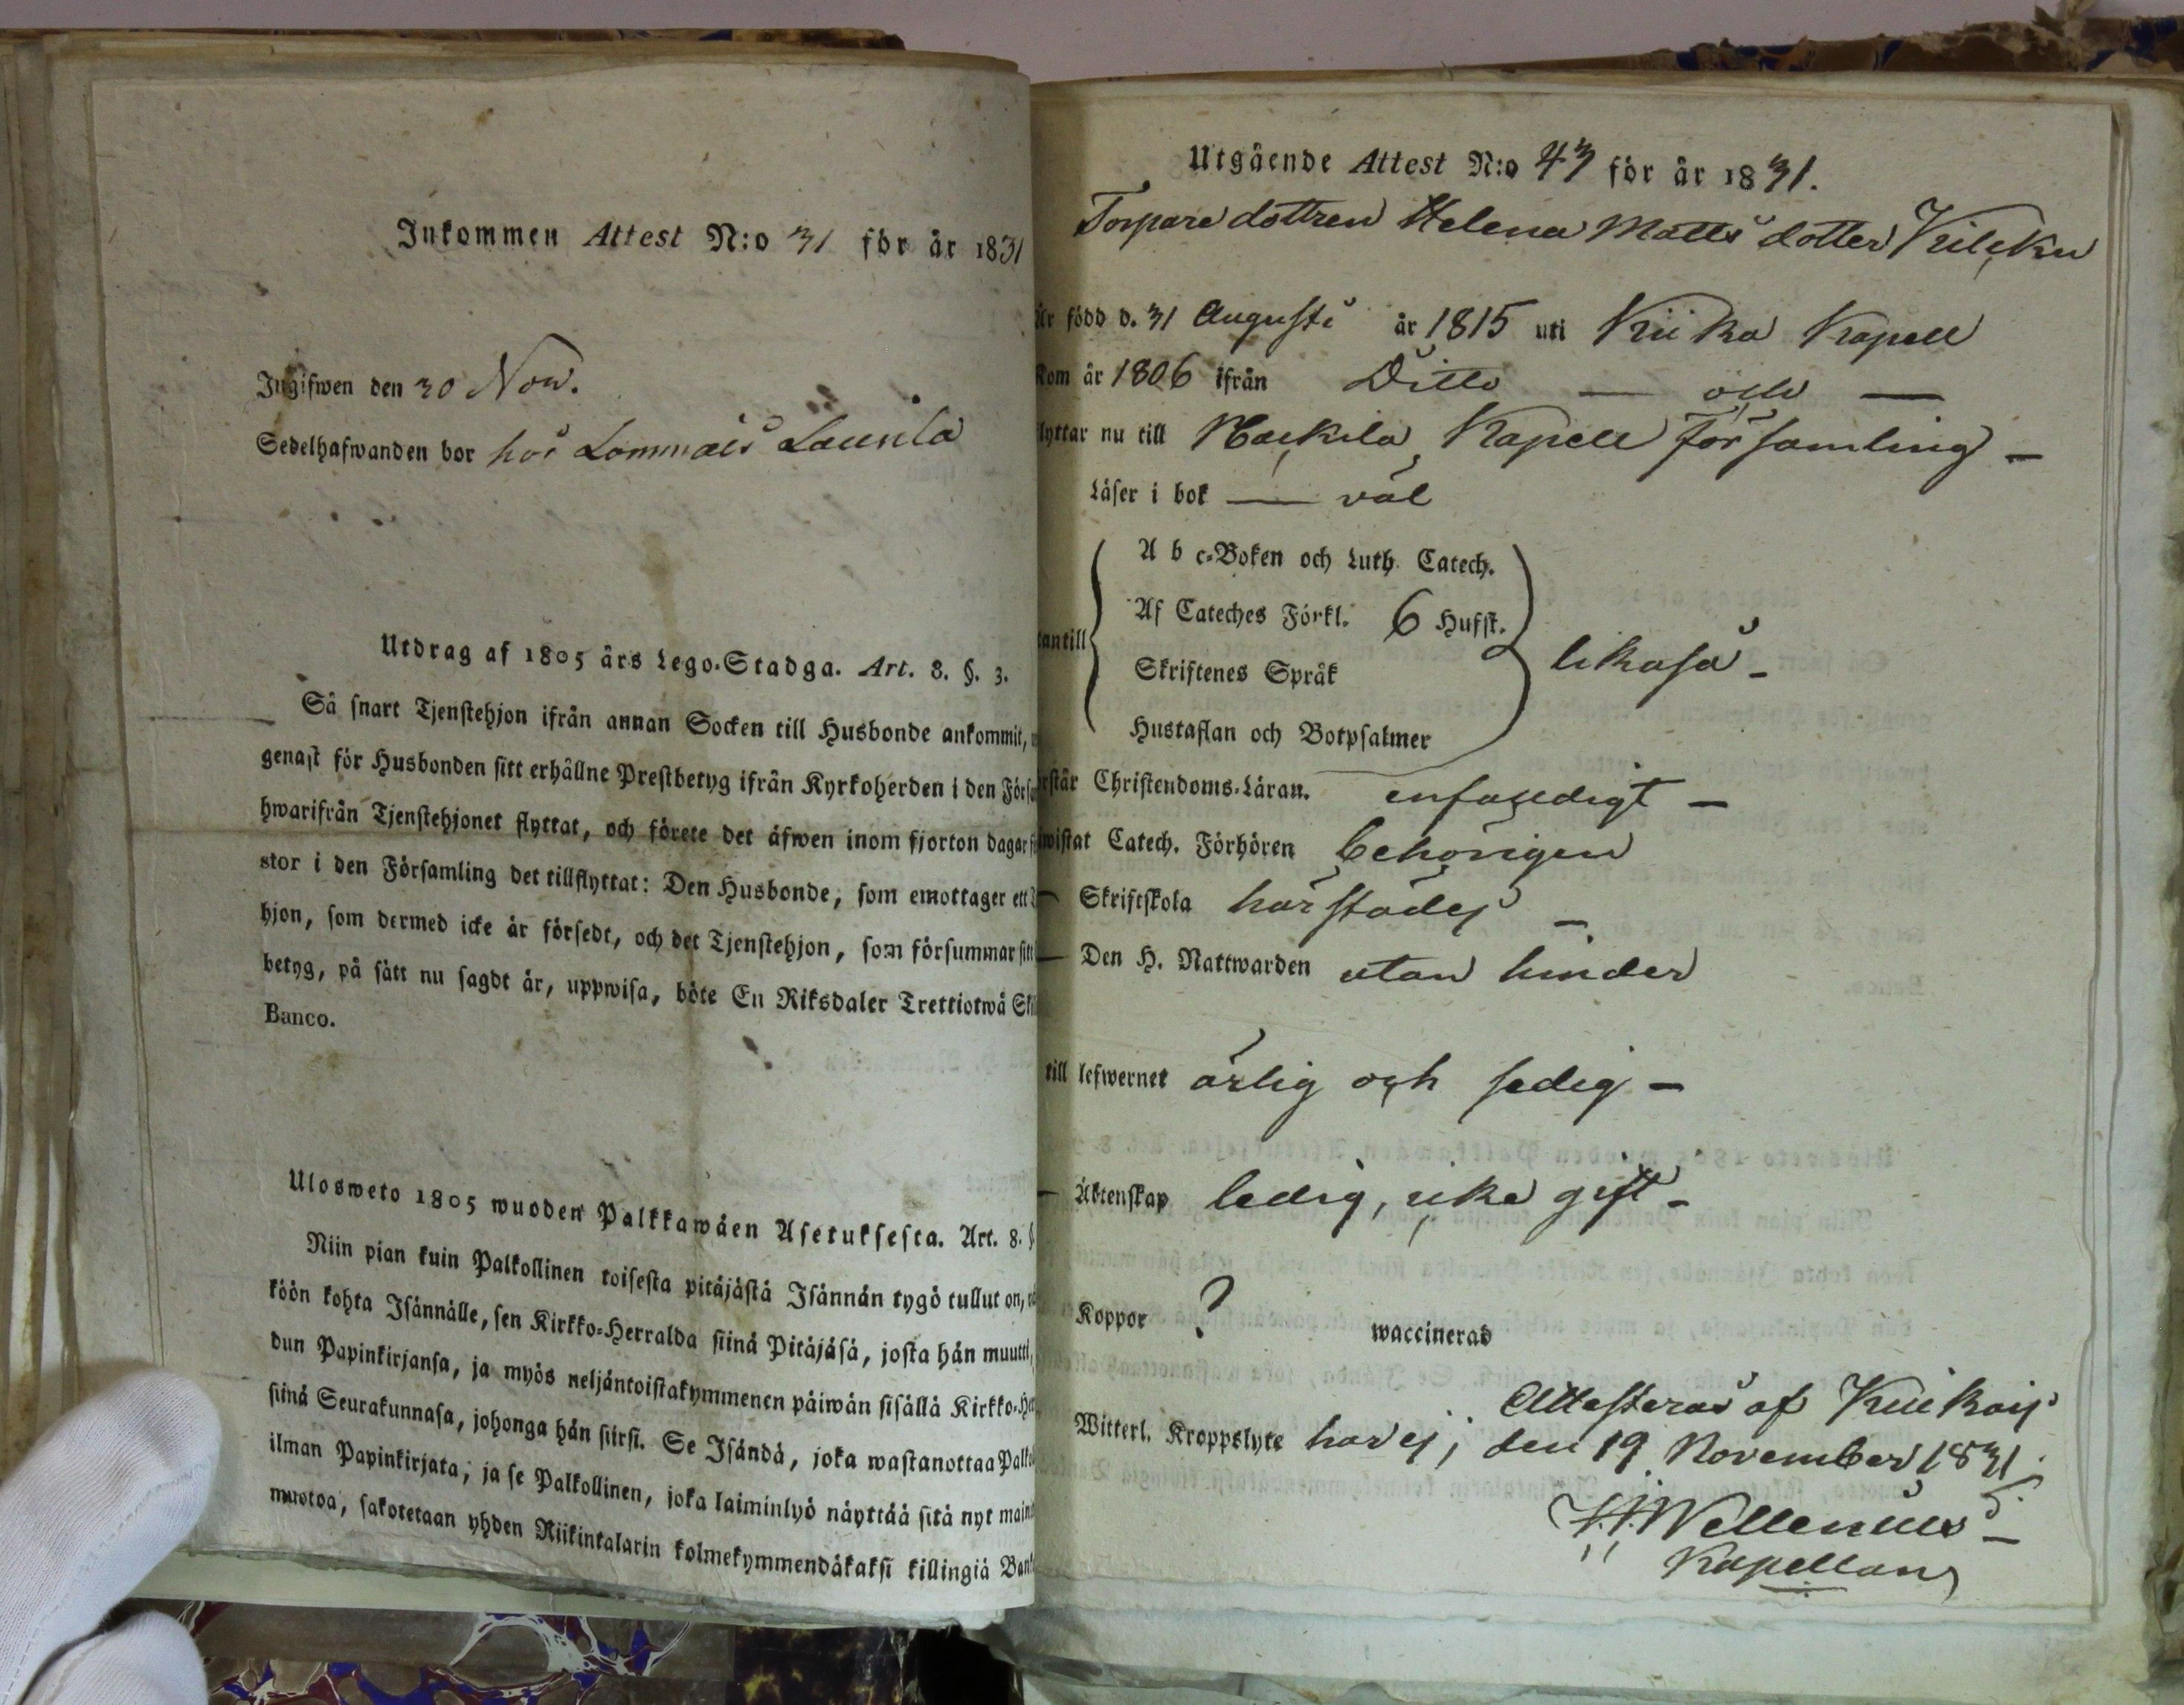 Inkommen Attest N:o 31 för år 1831
Ingifwen den 30 Nov.
Sedelhafwanden bor hos Lommais Launila
Utdrag af 1805 års Lego-Stadga. Art. 8. §. 3.
Så snart Tjenstehjon ifrån annan Socken till Husbonde ankommit,
genast för Husbonden sitt erhållne Prestbetyg ifrån Kyrkoherden i den Förs
hwarifrån Tjenstehjonet flyttat, och förete det äfwen inom fjorton dagar
stor i den Församling det tillflyttat: Den Husbonde, som emottager ett
hjon, som dermed icke är försedt, och det Tjenstehjon, som försummar sitt
betyg, på sätt nu sagdt är, uppwisa, böte En Riksdaler Trettiotwå Sk
Banco.
Ulosweto 1805 wuoden Palkkawäen Asetuksesta. Art. 8. §
Niin pian kuin Palkollinen toisesta pitäjästä Isännän tygö tullut on,
köön kohta Isännälle, sen Kirkko-Herralda siinä Pitäjäsä, josta hän muutti,
dun Papinkirjansa, ja myös neljäntoistakymmenen päiwän sisällä Kirkko-Her
siinä Seurakunnasa, johonga hän siirsi. Se Isändä, joka wastanottaa Palko
ilman Papinkirjata, ja se Palkollinen, joka laiminlyö näyttää sitä nyt main
muotoa, sakotetaan yhden Riikintalarin kolmekymmendäkaksi killingiä Ban
Utgående Attest N:o 43 för år 1831.
Torpare dottren Helena Matts dotter
Är född d. 31 Augusti år 1815 uti Kiika Kapell
Kom år 1806 ifrån Ditto — och —
flyttar nu till Kapell Församling —
Läser i bok — väl
A b c-Boken och Luth. Catech.
Af Cateches Förkl. 6 Hufst.
utantill
likaså -
Skriftenes Språk
Hustaflan och Botpsalmer
förstår Christendoms-Läran. enfaldigt —
biwistat Catech. Förhören behörigen
— Skriftskola härstädes —
— Den H. Nattwarden utan hinder
till lefwernet ärlig och sedig —
— Äktenskap ledig, icke gift -
Koppor ? waccinerad
Attesteras af Kiikois
Witterl. Kroppslyte har ej; den 19 November 1831.
Wellenius —
Kapellan